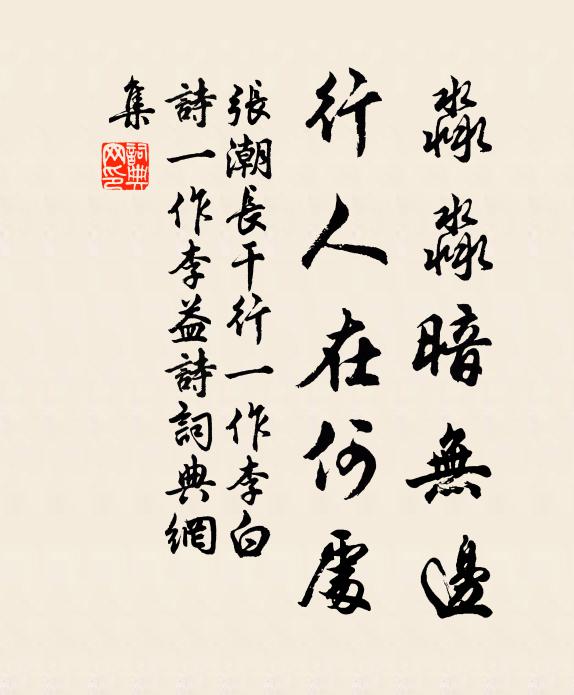 淼淼暗無邊
行人在何處
張潮長干行一作李白
詩一作李益詩詞典網
集
詞典網印